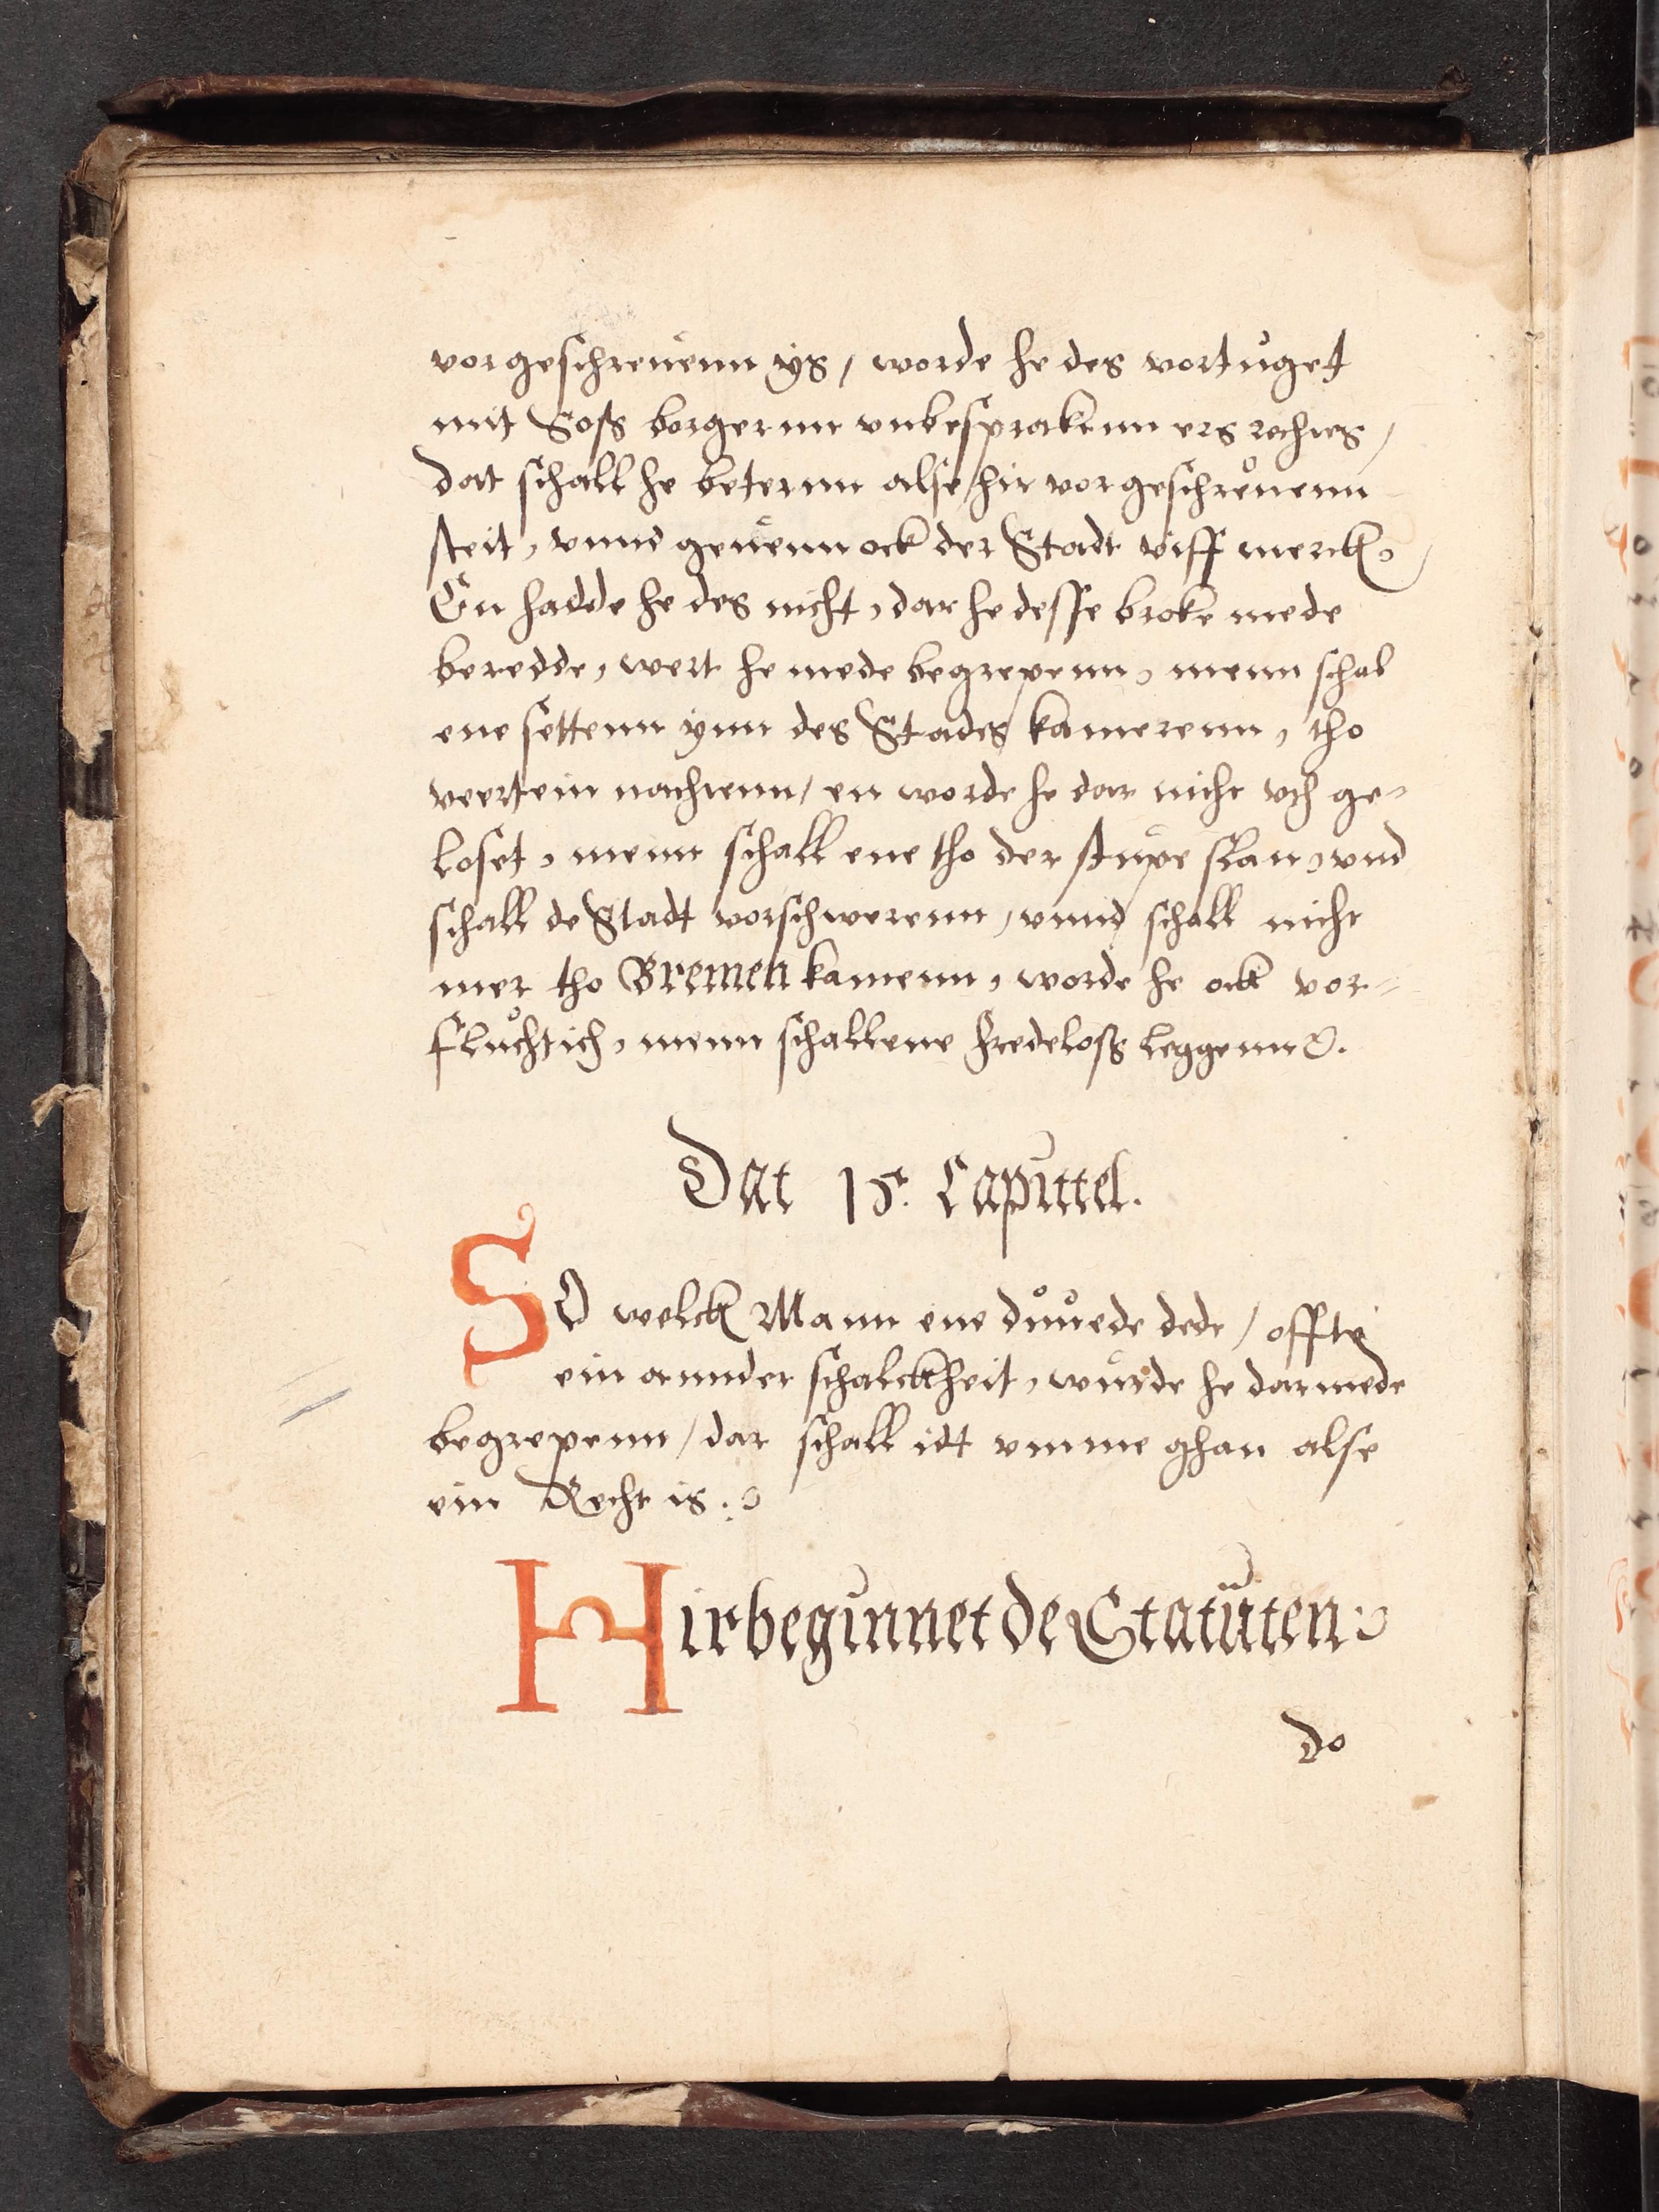 vorgeschreuenn ys, worde he des vortuget
mit Soss borgernn vnbesprakenn ers rechtes,
dat schall he beternn alse hir vorgeschreuenn
steit, vnnd geuenn ock der Stadt viff merck,
En hadde he des nicht, dar he desse broke mede
beredde, wert he mede begrepenn, menn schal
ene settenn ynn des Stades kamerenn, tho
veertein nachtenn, en worde he dar nicht vth ge-
loset, menn schall ene tho der stupe slan, vnd
schall de Stadt vorschwerenn, vnnd schall nicht
mer tho Bremen kamenn, worde he ock vor-
fluchtich, menn schall ene fredeloss leggenn.
Dat 15. Capittel.
SO welck Mann ene duuede dede, offte
ein annder schalckheit, wurde he darmede
begrepenn, dar schall idt vmme ghan alse
ein Recht is.
Hir beginnet de Statuten
Do